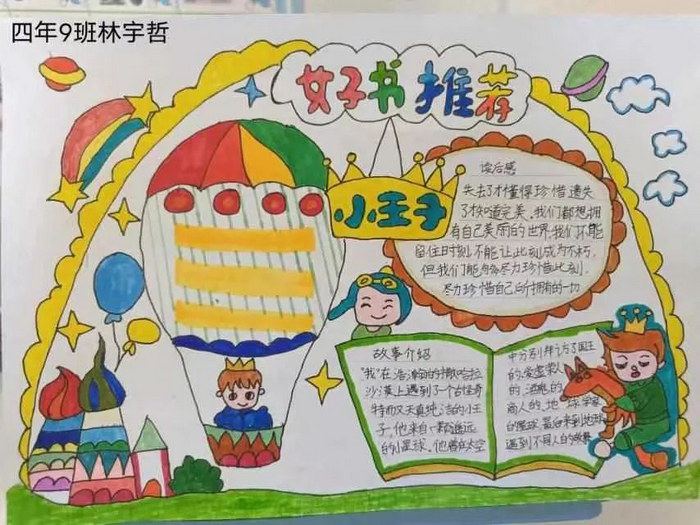 四年9班林宇哲
好书推荐
小王子
读后感
失去了才懂得珍惜遗失
了才知道完美,我们都想拥
有自己美丽的世界我们不能
留住时刻,不能让此刻成为不朽,
但我们能够尽力珍惜此刻,
尽力珍惜自己所拥有的一切
故事介绍
"我"在浩瀚的撒哈拉
沙漠上遇到了一个古怪奇
特而又天真纯洁的小王
子,他来自一颗遥远
的小星球。他 太空
中分别拜访了国王
的、爱虚荣人
的、酒鬼的、
商人的、地 学家
的星球,最后来到地球
遇到不同人的故事